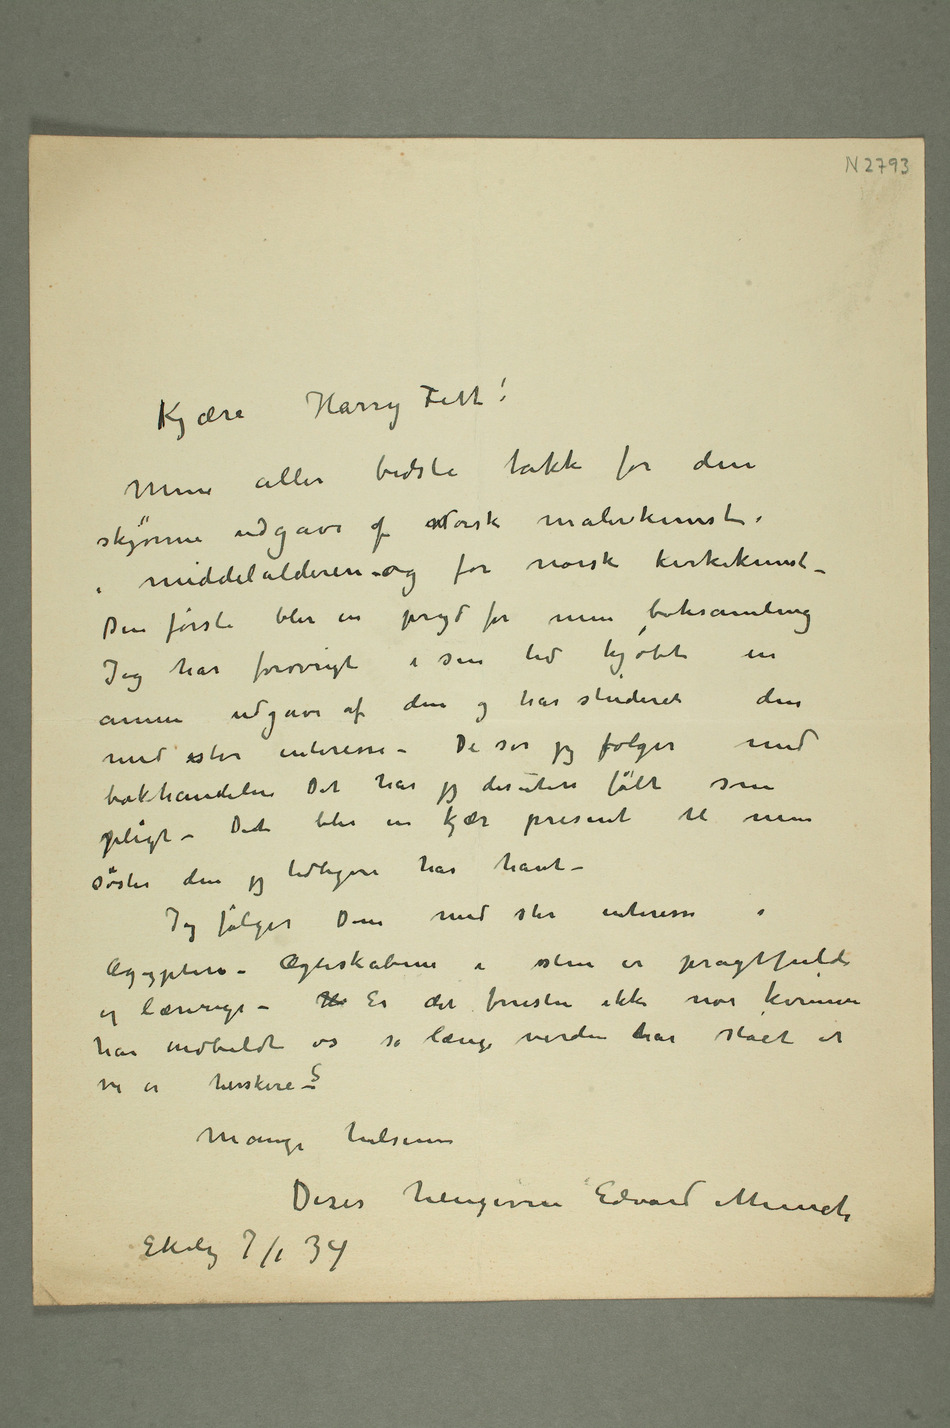 N 2793
Kjære Harry Fett!
Mine aller bedste takk for den
skjønne udgave af Norsk malerkunst
i middelalderen og for norsk kirkekunst –
Den første blir en pryd for min boksamling
Jeg har forøvrigt i sin tid kjøbt en
annen udgave af den og har studeret den
med stor interesse – De ser jeg følger med
bokhandelen Det har jeg desuten følt som
pligt – Det blir en kjær present til min
søster den jeg tidligere har havt –
Jeg følger Dem med stor interesse i
Ægypten – Ægteskabene i sten er pragtfulde
og lærerige – Er det forresten ikke nor kvinnen
har indbildt os så længe verden har stået at
vi er herskere –?
Mange hilsener
Deres hengivne Edvard Munch
Ekely 7/1 34